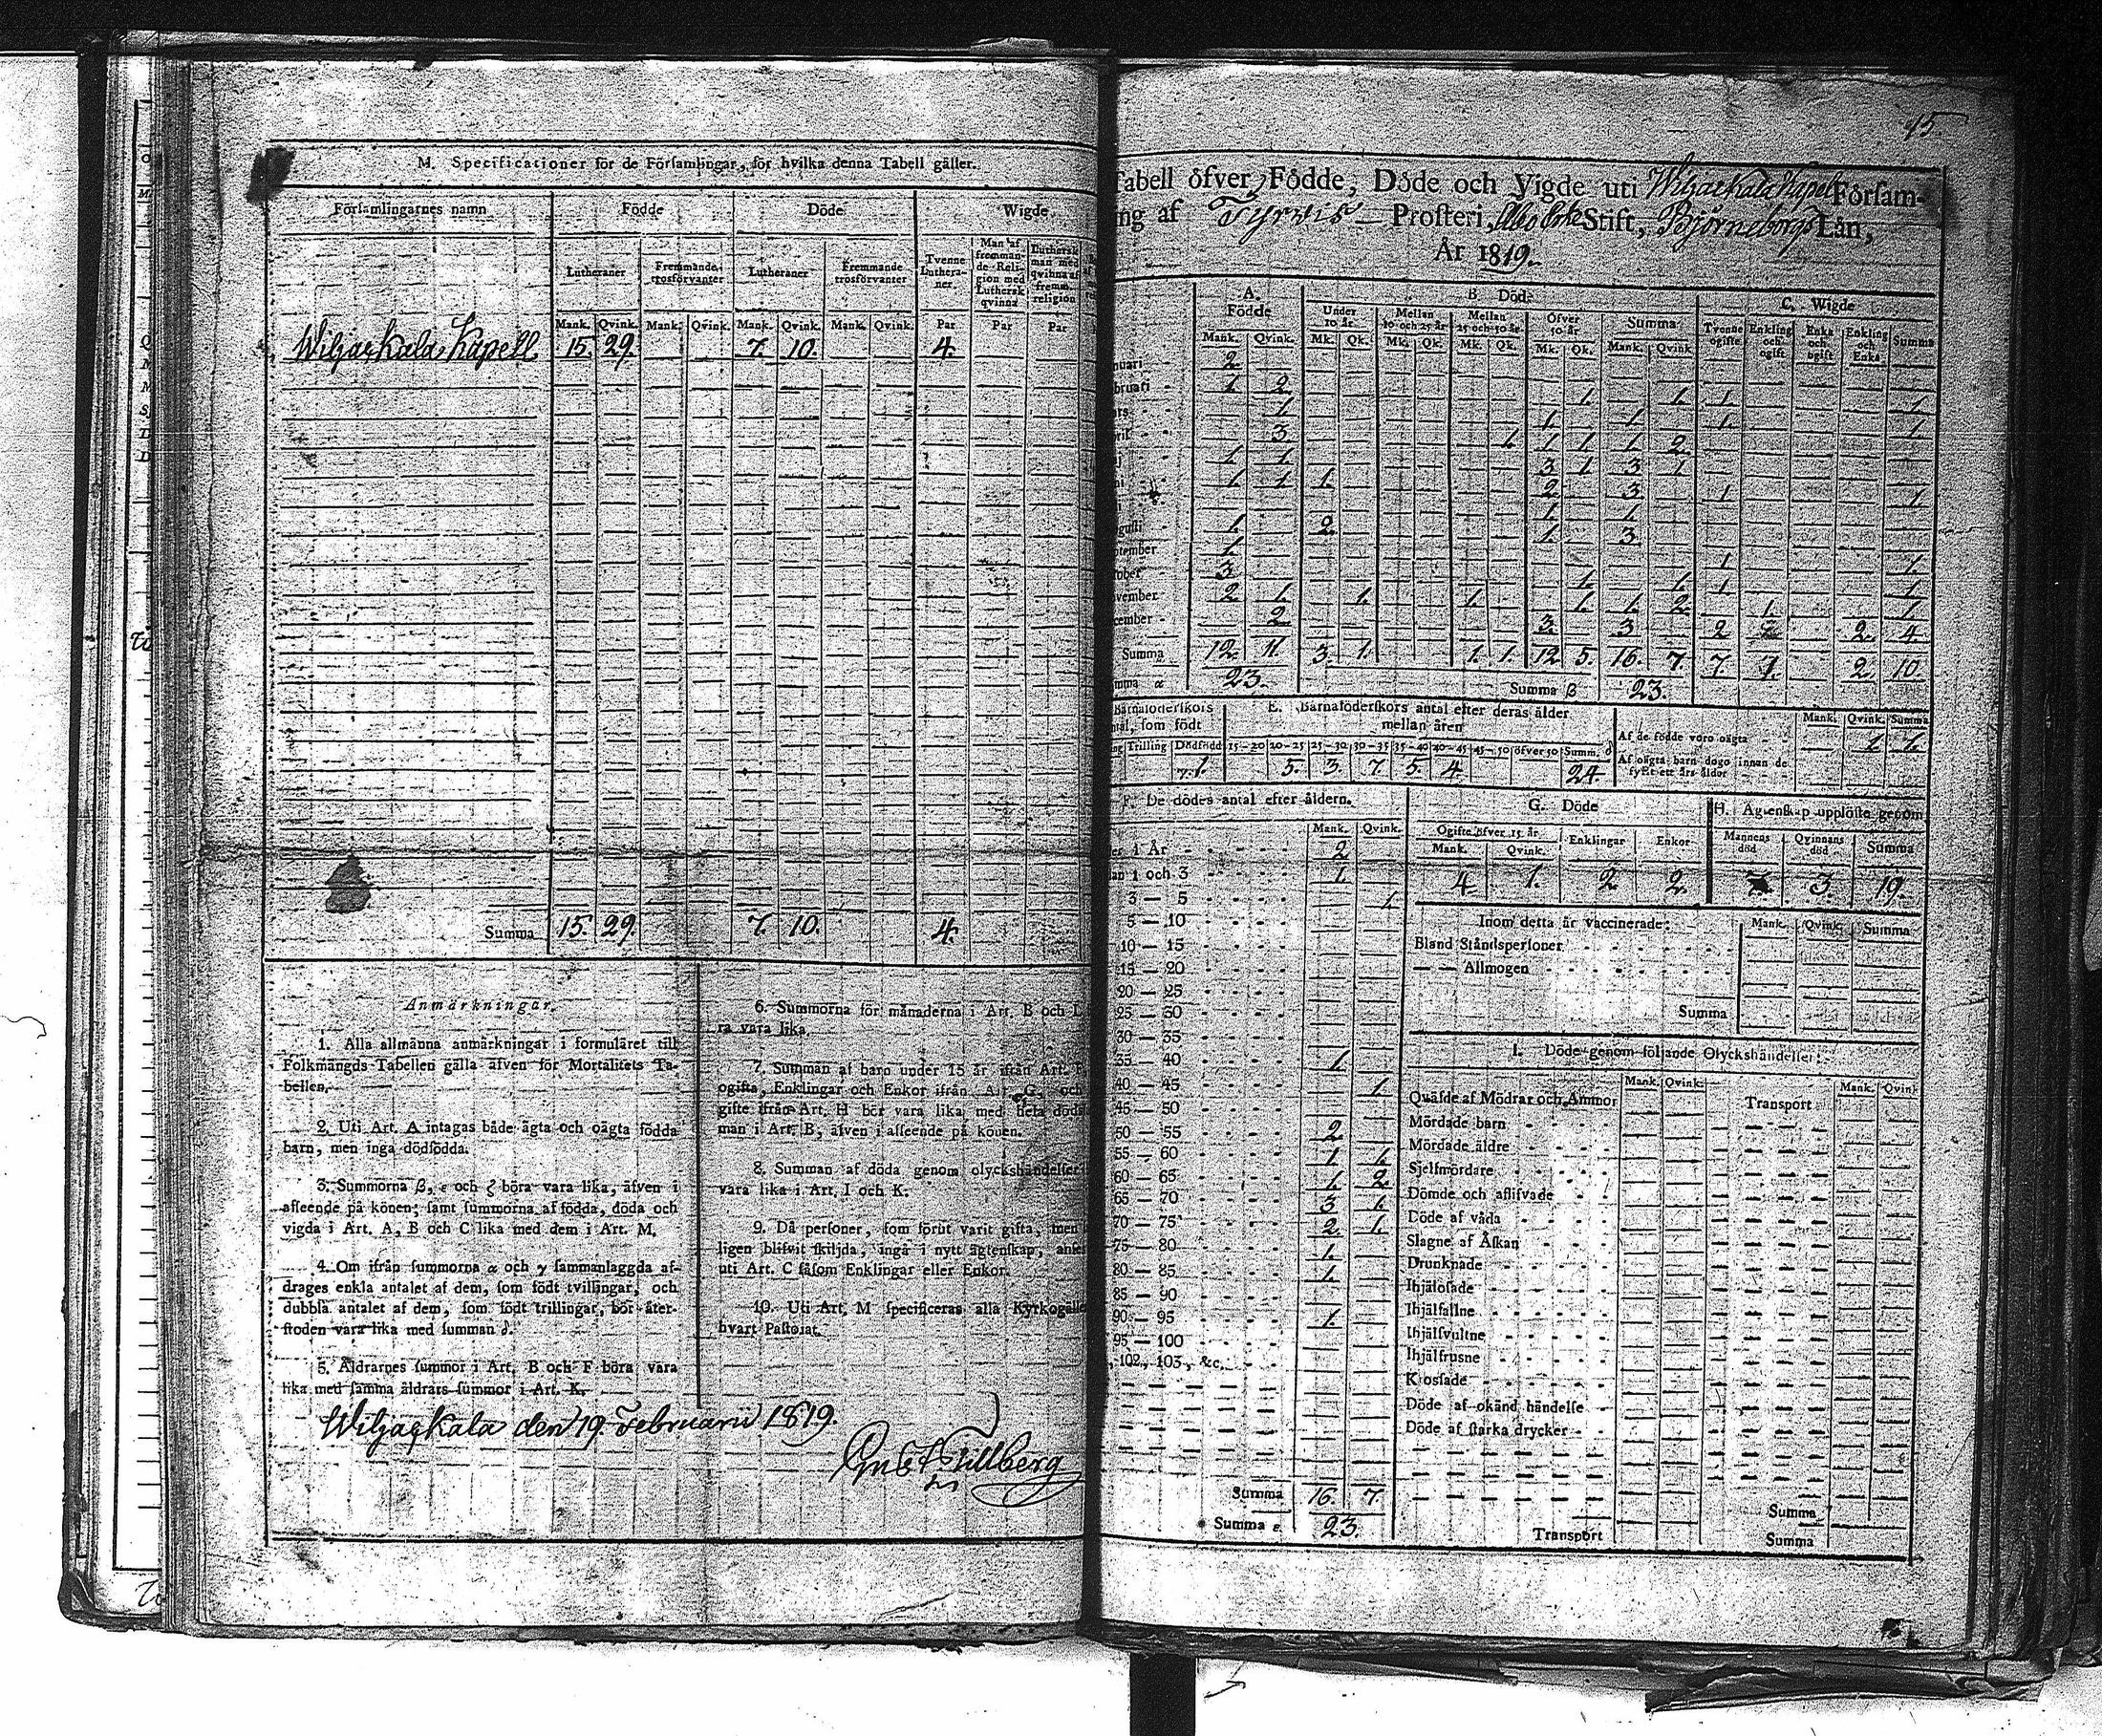 M. Specificationer för de Församlingar, för hvilka denna Tabell gäller.
Församlingarnes namn Födde Döde Wigde
Lutheraner Fremmande trosförvanter Lutheraner Fremmande trosförvanter Tvenne Lutheraner. Man af fremmande Religion med Luthersk qvinna Luthersk man med qvinna af fremm. religion
Mank. Qvink. Mank. Qvink. Mank. Qvink. Mank. Qvink. Par Par Par
Wiljackala Kapell 15. 29. 7. 10. 4.
Summa 15. 29. 7. 10. 4.
Anmärkningar.
1. Alla allmänna anmärkningar i formuläret till
Folkmängds-Tabellen gälla äfven för Mortalitets Ta-
bellen.
2. Uti Art. A intagas både ägta och oägta födda
barn, men inga dödfödda.
3. Summorna β, ε och ζ böra vara lika, äfven i
afseende på könen; samt summorna af födda, döda och
vigda i Art. A, B och C lika med dem i Art. M.
4. Om ifrån summorna α och γ sammanlaggda af-
drages enkla antalet af dem, som födt tvillingar, och
dubbla antalet af dem, som födt trillingar, bör åter-
stoden vara lika med summan δ.
5. Åldrarnes summor i Art. B och F böra vara
lika med samma åldrars summor i Art. K.
6. Summorna för månaderna i Art. B och L
ra vara lika.
7. Summan af barn under 15 år ifrån Art. F
ogifta, Enklingar och Enkor ifrån Art. G, och
gifte ifrån Art. H bör vara lika med hela döds
man i Art. B, äfven i afseende på könen.
8. Summan af döda genom olyckshändelser
vara lika i Art. I och K.
9. Då personer, som förut varit gifta, men
ligen blifvit skiljda, ingå i nytt ägtenskap, anse
uti Art. C såsom Enklingar eller Enkor.
10. Uti Art. M specificeras alla Kyrkogälle
hvart Pastorat.
Wiljackala den 19. Februarii 1819.
Tillberg
45.
Tabell öfver Födde, Döde och Vigde uti Wiljackala Kapel Försam-
ng af Tyrvis Prosteri, Åbo Erke Stift, Björneborgs Län,
År 1819.
A. Födde B. Döde C. Wigde
Under 10 år. Mellan 10 och 25 år Mellan 25 och 50 år. Öfver 50 år Summa Tvenne ogifte. Enkling och ogift Enka och ogift Enkling och Enka Summa
Mank. Qvink. Mk. Qk. Mk. Qk. Mk. Qk. Mk. Qk. Mank. Qvink.
nuari 2.
bruari 1. 2. 1. 1. 1. 1.
ars 1. 1. 1. 1. 1.
pril 3. 1. 1. 1. 1. 2.
aj 1. 1. 3. 1. 3. 1.
ni 1. 1. 1. 2. 3. 1. 1.
li 1. 1.
gusti 1. 2. 1. 3.
ptember 1. 1. 1.
tober 3. 1. 1. 1. 1.
vember 2. 1. 1. 1. 1. 1. 2. 1. 1.
cember 2. 3. 3. 2 2. 4
Summa 12. 11. 3. 1. 1. 1. 12. 5. 16. 7. 7. 1. 2. 10.
mma α 23. Summa β 23.
Barnaföderskors
ntal, som födt
Trilling Dödfödd
1.
E. Barnaföderskors antal efter deras ålder
mellan åren
15—20 20—25 25—30 30—35 35—40 40—45 45—50 öfver 50 Summ. δ
5. 3. 7. 5. 4. 24.
Mank. Qvink. Summa
Af de födde voro oägta 1. 1.
Af oägta barn dogo innan de
fyllt ett års ålder
F. De dödes antal efter åldern.
Mank. Qvink.
er 1 År 2.
an 1 och 3 1.
3 — 5 1.
5 — 10
10 — 15
15 — 20
20 — 25
25 — 30
30 — 35
35 — 40 1.
40 — 45 1.
45 — 50
50 — 55 2.
55 — 60 1. 1.
60 — 65 1. 2.
65 — 70 3. 1.
70 — 75 2. 1.
75 — 80 1.
80 — 85 1.
85 — 90
90 — 95 1.
95 — 100
, 102, 103, &c.
Summa 16. 7.
Summa ε 23.
G. Döde
Ogifte öfver 15 år Enklingar Enkor
Mank. Qvink.
4. 1. 2. 2.
H. Ägtenskap upplöste genom
Mannens död Qvinnans död Summa
7. 3. 19.
Inom detta år vaccinerade: Mank. Qvink. Summa
Bland Ståndspersoner
— — Allmogen
Summa
I. Döde genom följande Olyckshändelser:
Mank. Qvink. Mank. Qvink
Qväfde af Mödrar och Ammor Transport
Mördade barn
Mördade äldre
Sjelfmördare
Dömde och aflifvade
Döde af våda
Slagne af Åskan
Drunknade
Ihjälosade
Ihjälfallne
Ihjälsvultne
Ihjälfrusne
Krossade
Döde af okänd händelse
Döde af starka drycker
Summa
Transport Summa